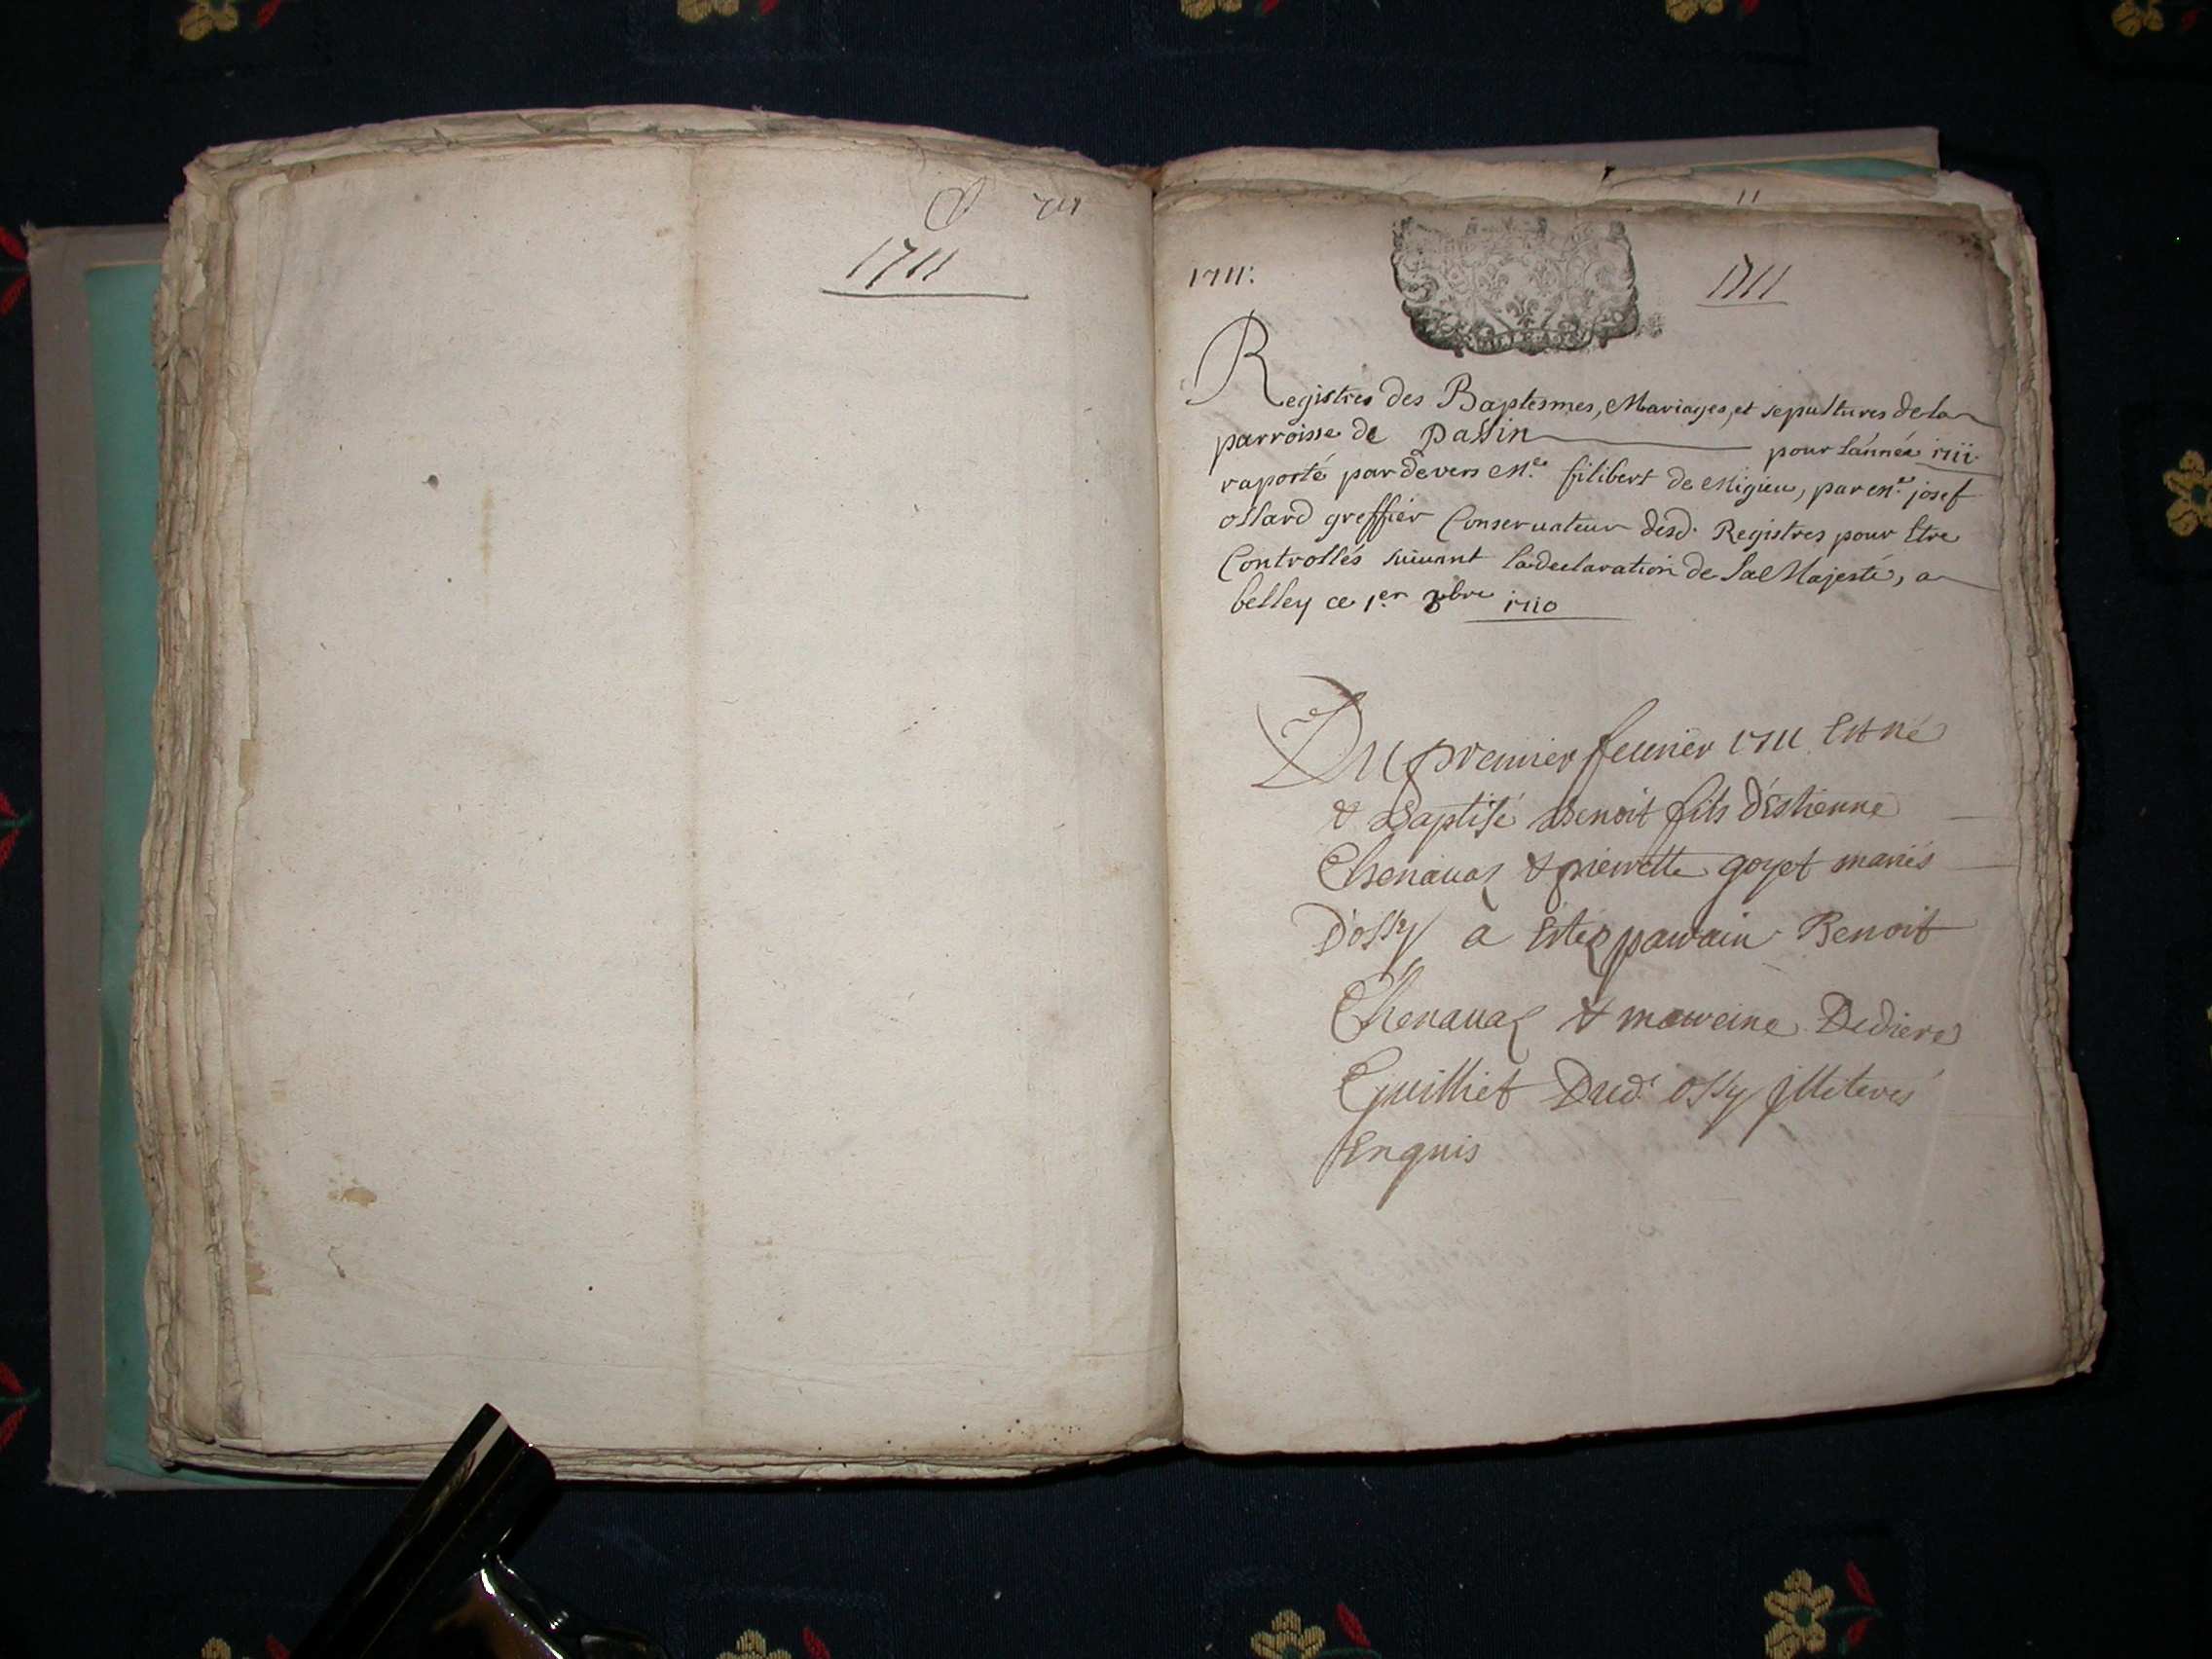 1711
1711
1711
Registres des Baptesmes, Mariages, et sepultures de la
parroisse de Passin pour l'année 1711
raporté pardevers Me. filibert de Migieu, par me. josef
ossard greffier Conseruateur desd. Registres pour Etre
Controllés suiuant la declaration de Sa Majesté, a
belley ce 1er xbre 1710
Du premier feurier 1711 Est né
& Baptisé Benoit fils d'Estienne
Chenauaz & pierrette goyet mariés
D'ossy à Esté parrain Benoit
Chenauaz & marreine Dediere
Guilliet Dud. ossy illiterés
Enquis